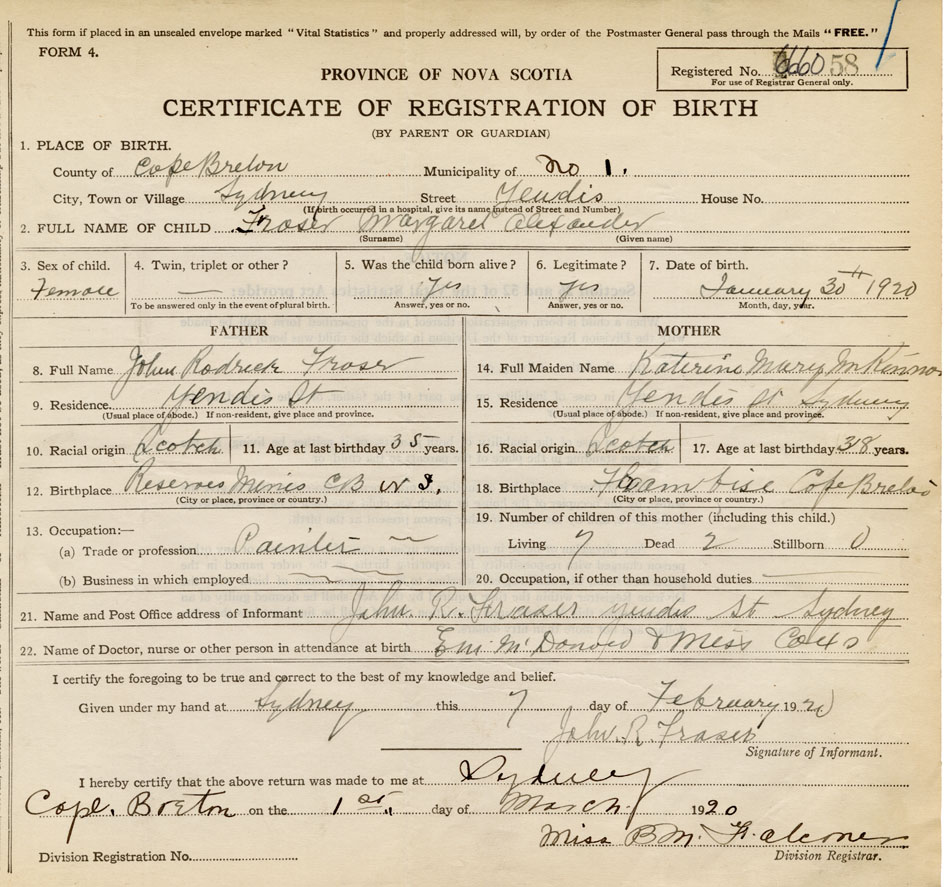 This form if placed in an unsealed envelope marked "Vital Statistics" and properly addressed will, by order of the Postmaster General pass through the Mails "FREE."
FORM 4.
PROVINCE OF NOVA SCOTIA
Registered No. 58
For use of Registrar General only.
CERTIFICATE OF REGISTRATION OF BIRTH
(BY PARENT OR GUARDIAN)
1. PLACE OF BIRTH.
County of Cape Breton Municipality of No 1.
City, Town or Village Sydney Street Yendis House No.
(If birth occurred in a hospital, give its name instead of Street and Number)
2. FULL NAME OF CHILD Fraser Margaret Alexander
(Surname) (Given name)
3. Sex of child. 4. Twin, triplet or other? 5. Was the child born alive? 6. Legitimate? 7. Date of birth.
Female — Yes Yes January 30th 1920
To be answered only in the event of plural birth. Answer, yes or no. Answer, yes or no. Month, day, year.
FATHER MOTHER
8. Full Name John Rodrick Fraser 14. Full Maiden Name Katerine Mary McKinnon
9. Residence. Yendis St 15. Residence Yendis St Sydney
(Usual place of abode.) If non-resident, give place and province. (Usual place of abode.) If non-resident, give place and province.
10. Racial origin Scotch 11. Age at last birthday 35 years. 16. Racial origin Scotch 17. Age at last birthday 38 years.
12. Birthplace Reserves Mines CB N S. 18. Birthplace Cape Breton
(City or place, province or country.) (City or place, province or country.)
13. Occupation:— 19. Number of children of this mother (including this child.)
(a) Trade or profession Painter Living 7 Dead 2 Stillborn 0
(b) Business in which employed 20. Occupation, if other than household duties
21. Name and Post Office address of Informant John. R. Fraser Yendis St Sydney
22. Name of Doctor, nurse or other person in attendance at birth McDonald & Miss
I certify the foregoing to be true and correct to the best of my knowledge and belief.
Given under my hand at Sydney this 7 day of February 1920
John. R. Fraser
Signature of Informant.
I hereby certify that the above return was made to me at Sydney
Cape Breton on the 1st day of March 1920
Miss B.M. Falconer
Division Registration No. Division Registrar.